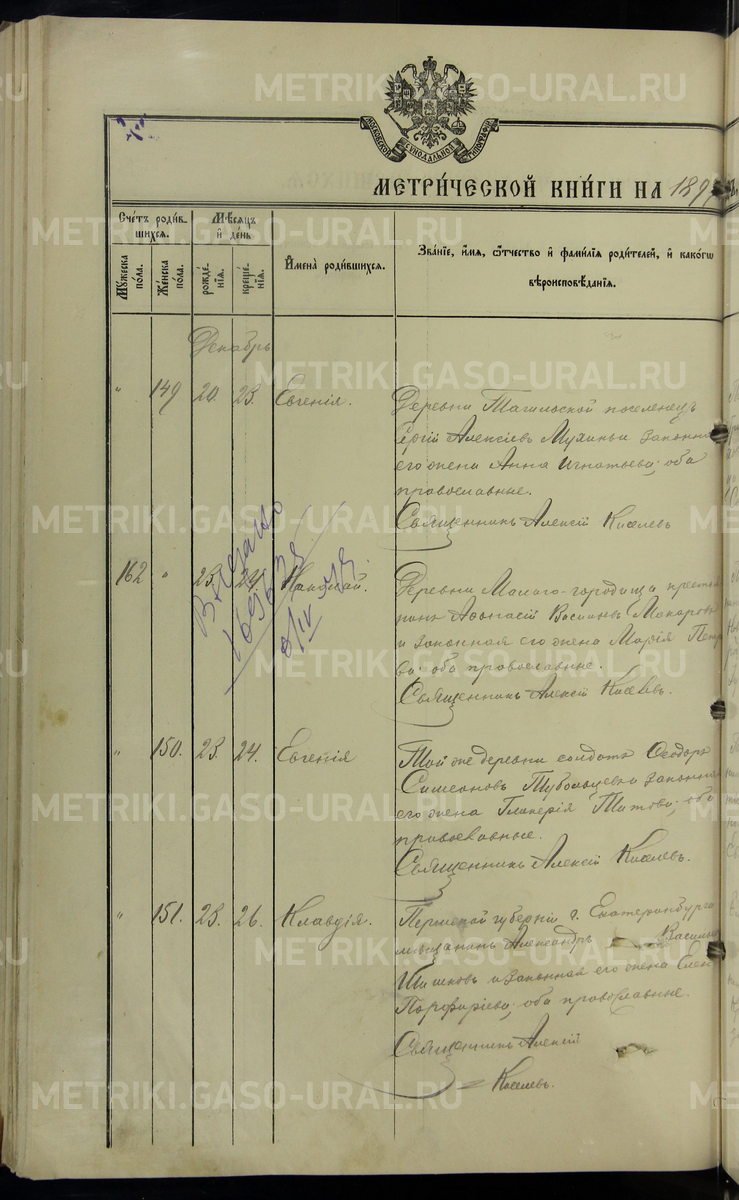 METRIKI.GASO-URAL.RU
МОСКОВСКОЙ СѴНОДАЛЬНОЙ ТИПОГРАФІИ
МЕТРИ́ЧЕСКОЙ КНИ́ГИ НА 189
Сче́тъ роди́в-
шихся.
Му́жеска по́ла.
Же́нска по́ла.
Мѣ́сяцъ
и҆ де́нь
рожде́-
нїѧ.
креще́-
нїѧ.
И҆мена̀ роди́вшихсѧ.
Зва́нїе, и҆́мѧ, ѻ҆́тчество и҆ фами́лїѧ роди́телей, и҆ како́гѡ
вѣроисповѣ́данїѧ.
Декабрь
" 149 20. 23. Евгенія.
Деревни Тагильской поселенецъ
Сергій Алексіевъ Мухинъ и законная
его жена Анна Игнатьева; оба
православные.
Священникъ Алексій Киселевъ
162 " 23. 24. Николай.
Деревни Малаго-городища крестья
нинъ Афанасій Васильевъ Макаровъ
и законная его жена Марія Петро
ва; оба православные.
Священникъ Алексій Киселевъ.
" 150. 23. 24. Евгенія
Той же деревни солдатъ Ѳеодоръ
Симеоновъ и законная
его жена Гликерія Титова; оба
православные.
Священникъ Алексій Киселевъ.
" 151. 23. 26. Клавдія.
Пермской губерніи г. Екатеринбурга
мѣщанинъ Александръ Василье
Шишковъ и законная его жена Елен
Порфиріева; оба православные.
Священникъ Алексій
Киселевъ.